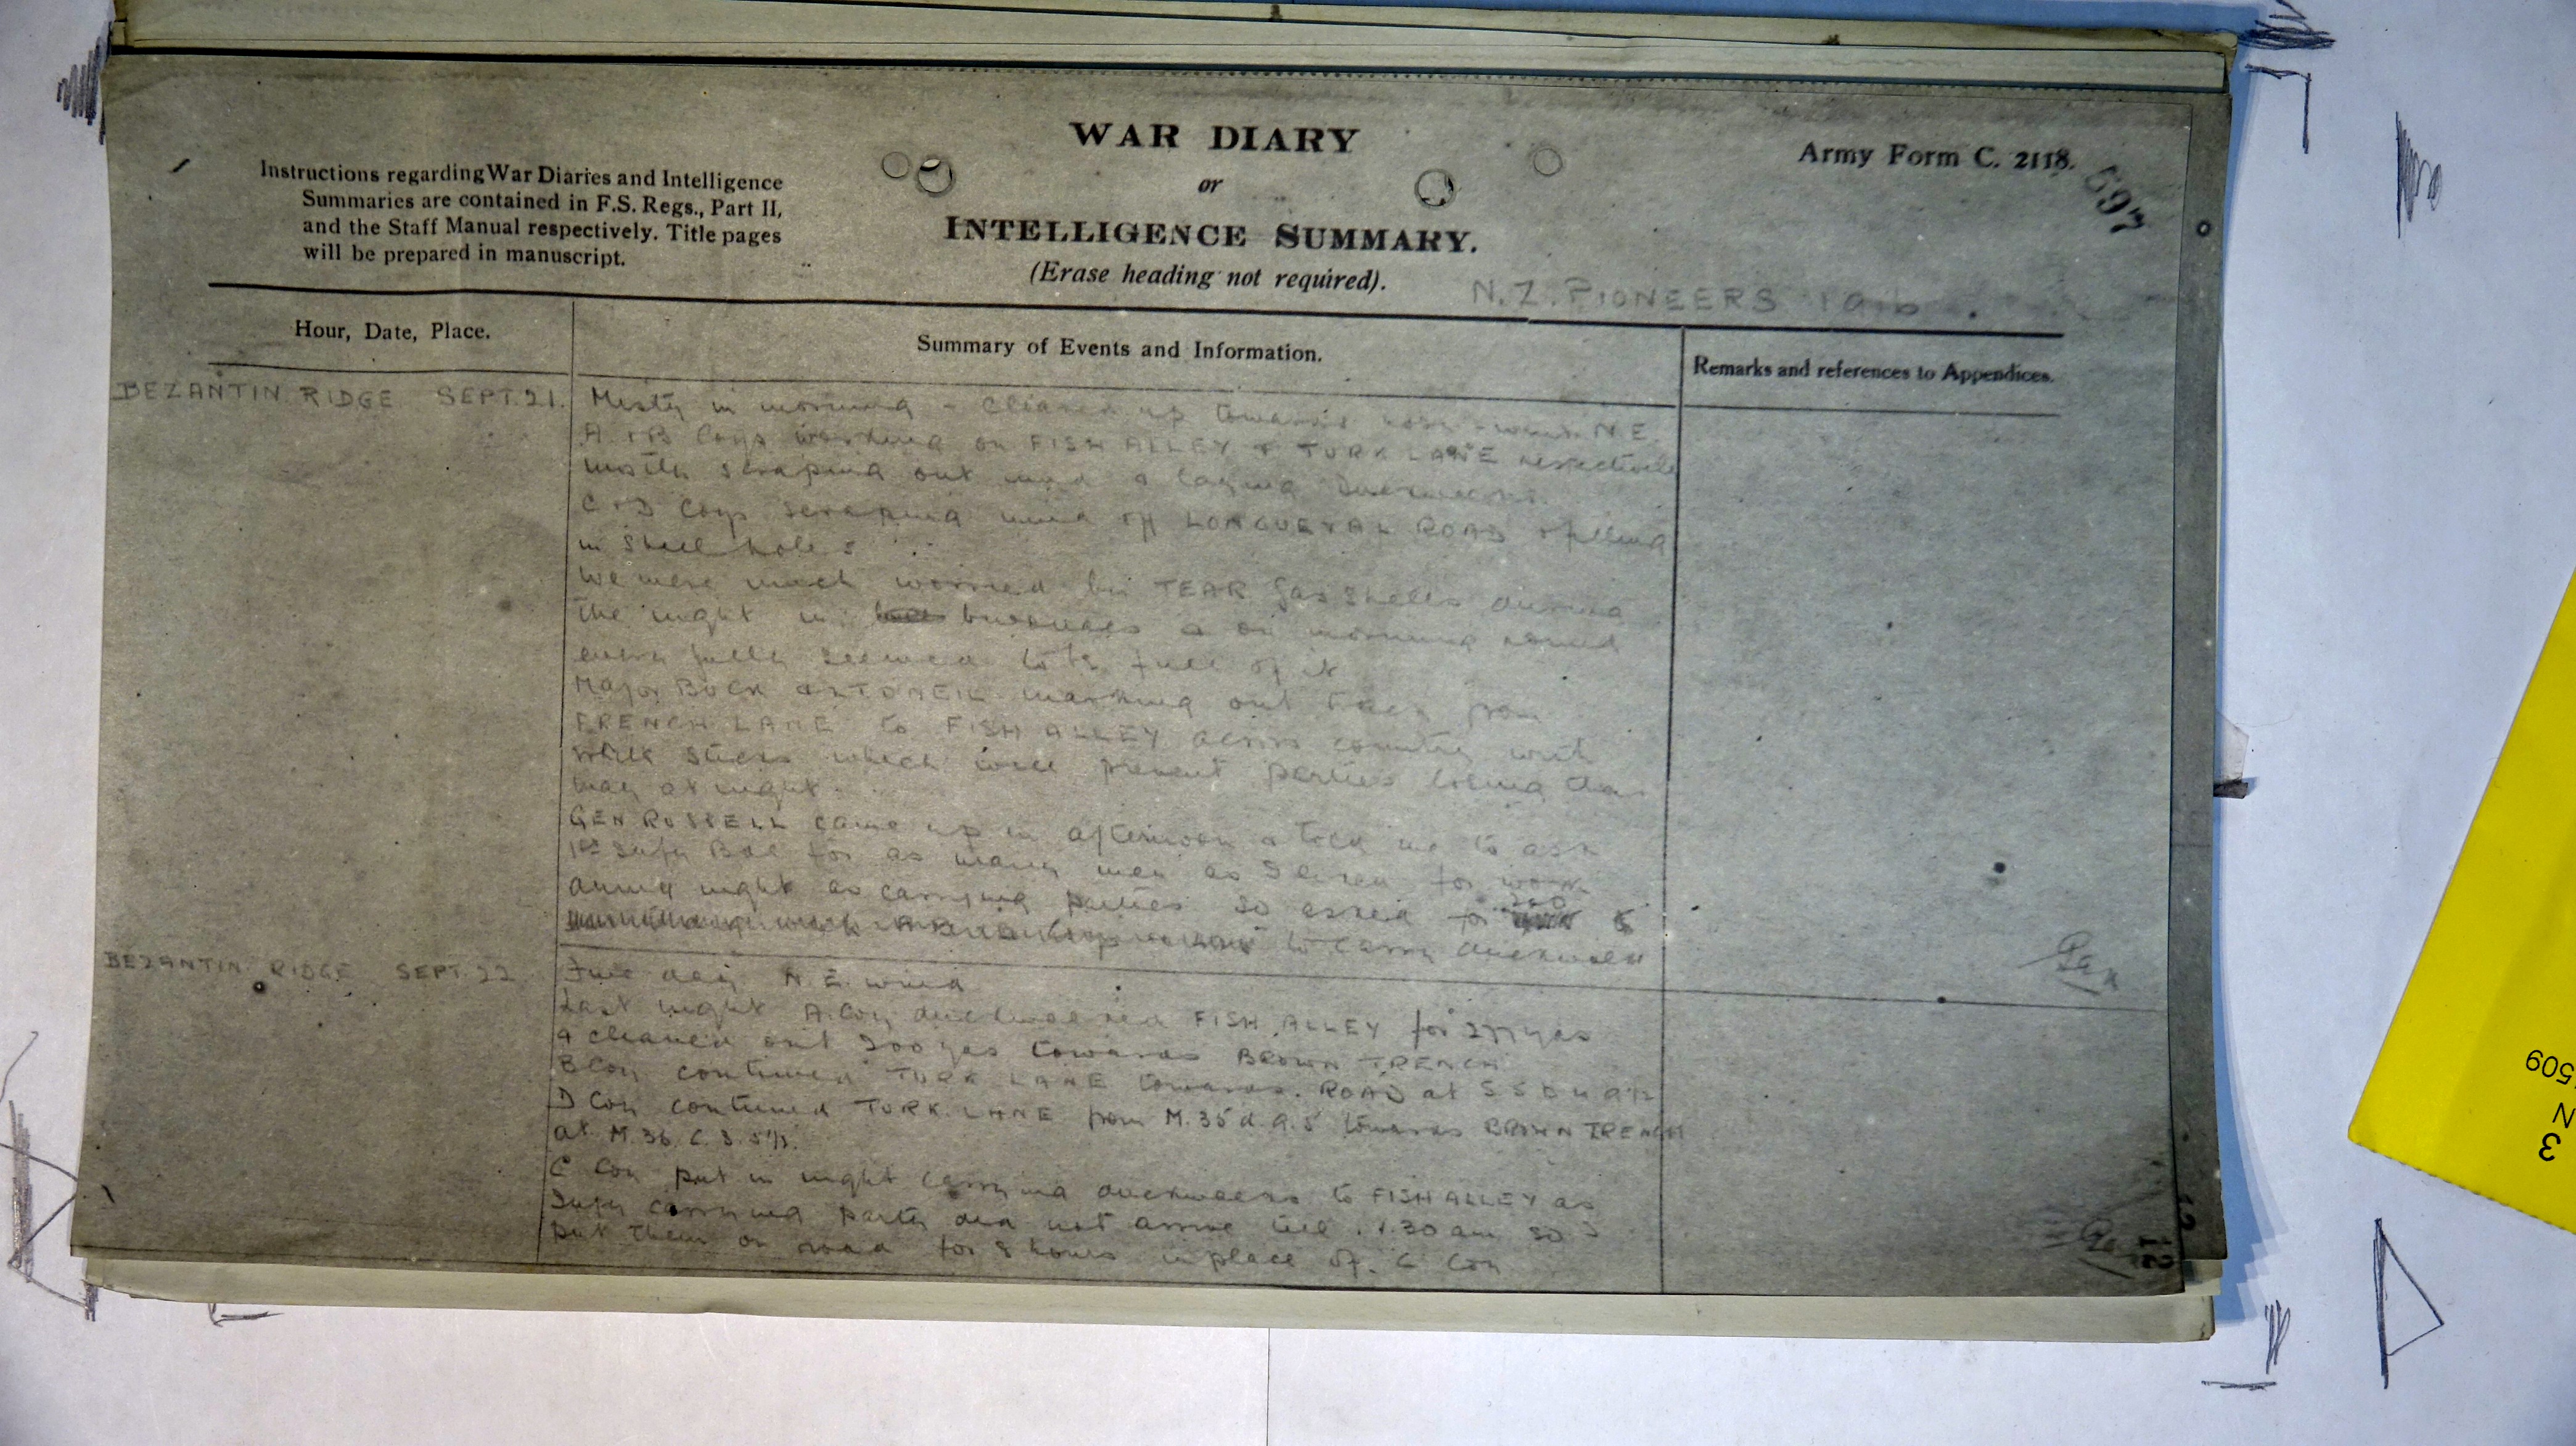 WAR DIARY
or
INTELLIGENCE SUMMARY.
(Erase heading not required).
Instructions regarding War Diaries and Intelligence
Summaries are contained in F.S. Regs., Part II,
and the Staff Manual respectively. Title pages
will be prepared in manuscript.
Army Form C. 2118.
697
N.Z. PIONEERS 1916.
Hour, Date, Place.
Summary of Events and Information.
Remarks and references to Appendices.
BEZANTIN RIDGE SEPT. 21.
Misty in morning - cleared up towards noon - wind N.E.
A & B Coys working on FISH ALLEY & TURK LANE respectively
mostly scraping out mud & laying Duckwalks.
C & D Coys scraping mud off LONGUEVAL ROAD & filling
in shell holes.
We were much worried by TEAR gas shells during
the night in bivouacs & on morning round
every gully seemed to be full of it
Major BUCK & LT O'NEIL marking out track from
FRENCH LANE to FISH ALLEY across country with
white sticks which will prevent parties losing their
way at night.
GEN RUSSELL came up in afternoon & told me to ask
1st Infy Bde for as many men as I liked for work
during night as carrying parties so asked for 200
to carry duckwalks
BEZANTIN RIDGE SEPT. 22
Fine day N.E. wind
Last night A. Coy duckwalked FISH ALLEY for 277 yds
& cleaned out 200 yds towards BROWN TRENCH
B Coy continued TURK LANE towards ROAD at S 5 b 4 9½
D Coy continued TURK LANE from M.35 d.9.5 towards BROWN TRENCH
at M.36.C.3.5½.
C Coy put in night carrying duckwalks to FISH ALLEY as
Infy carrying party did not arrive till 1.30 am so I
put them on road for 8 hours in place of C Coy
12
509
N
3